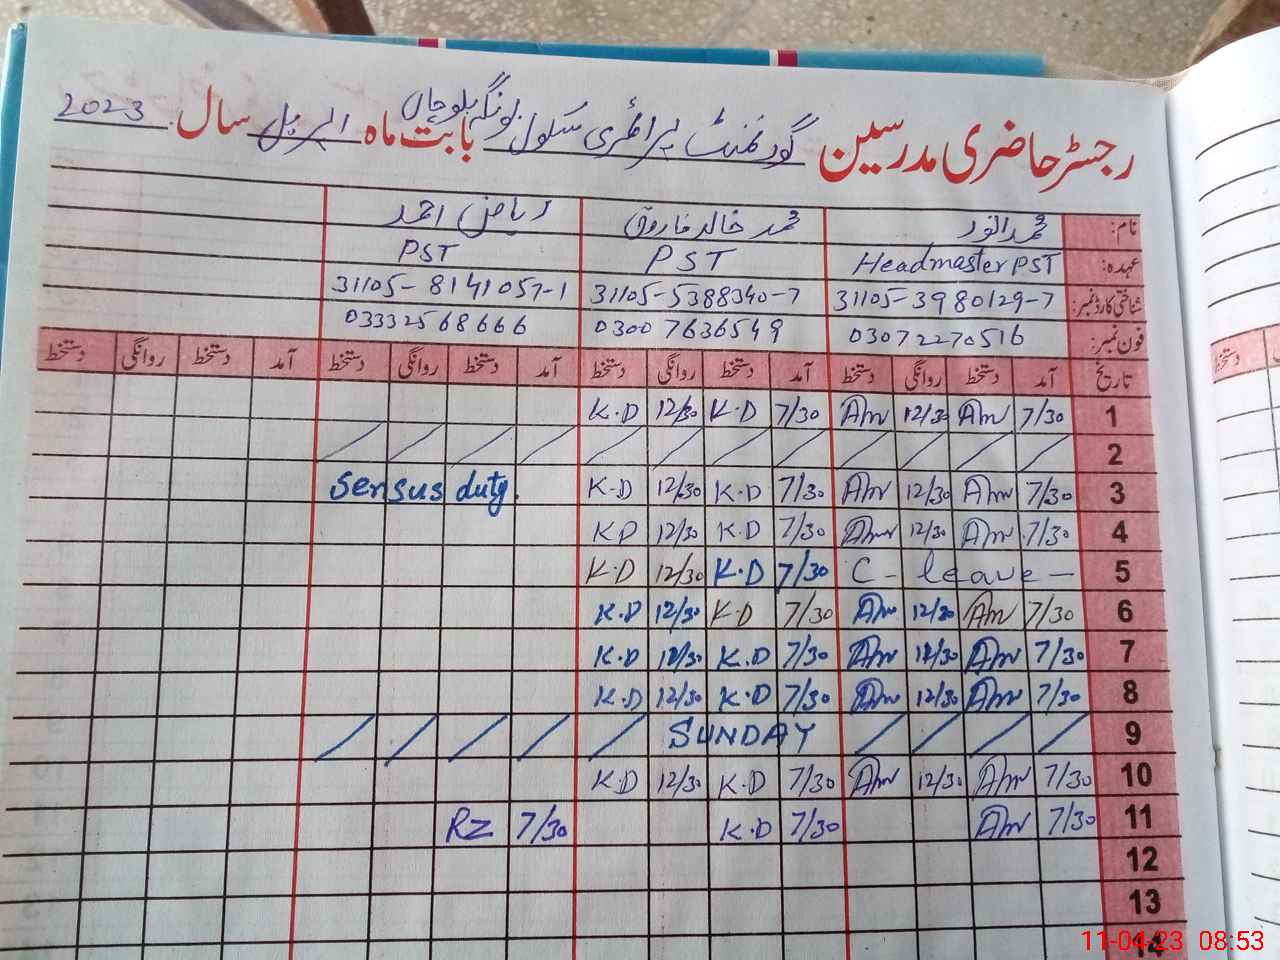 رجسٹر حاضری مدرسین گورنمنٹ پرائمری سکول بونگہ بلوچاں بابت ماہ اپریل سال 2023
نام: محمد انور محمد خالد فاروق ریاض احمد
عہدہ: Headmaster PST PST PST
شناختی کارڈ نمبر: 31105-3980129-7 31105-5388340-7 31105-8141057-1
فون نمبر: 03072270516 03007636549 03332568666
تاریخ آمد دستخط روانگی دستخط آمد دستخط روانگی دستخط آمد دستخط روانگی دستخط آمد دستخط روانگی دستخط
1 7/30 Am 12/30 Am 7/30 K.D 12/30 K.D
2
3 7/30 Am 12/30 Am 7/30 K.D 12/30 K.D Sensus duty.
4 7/30 Am 12/30 Am 7/30 K.D 12/30 K.D
5 C - leave - 7/30 K.D 12/30 K.D
6 7/30 Am 12/30 Am 7/30 K.D 12/30 K.D
7 7/30 Am 12/30 Am 7/30 K.D 12/30 K.D
8 7/30 Am 12/30 Am 7/30 K.D 12/30 K.D
9 SUNDAY
10 7/30 Am 12/30 Am 7/30 K.D 12/30 K.D
11 7/30 Am 7/30 K.D 7/30 RZ
12
13
14
دستخط
11-04-23 08:53